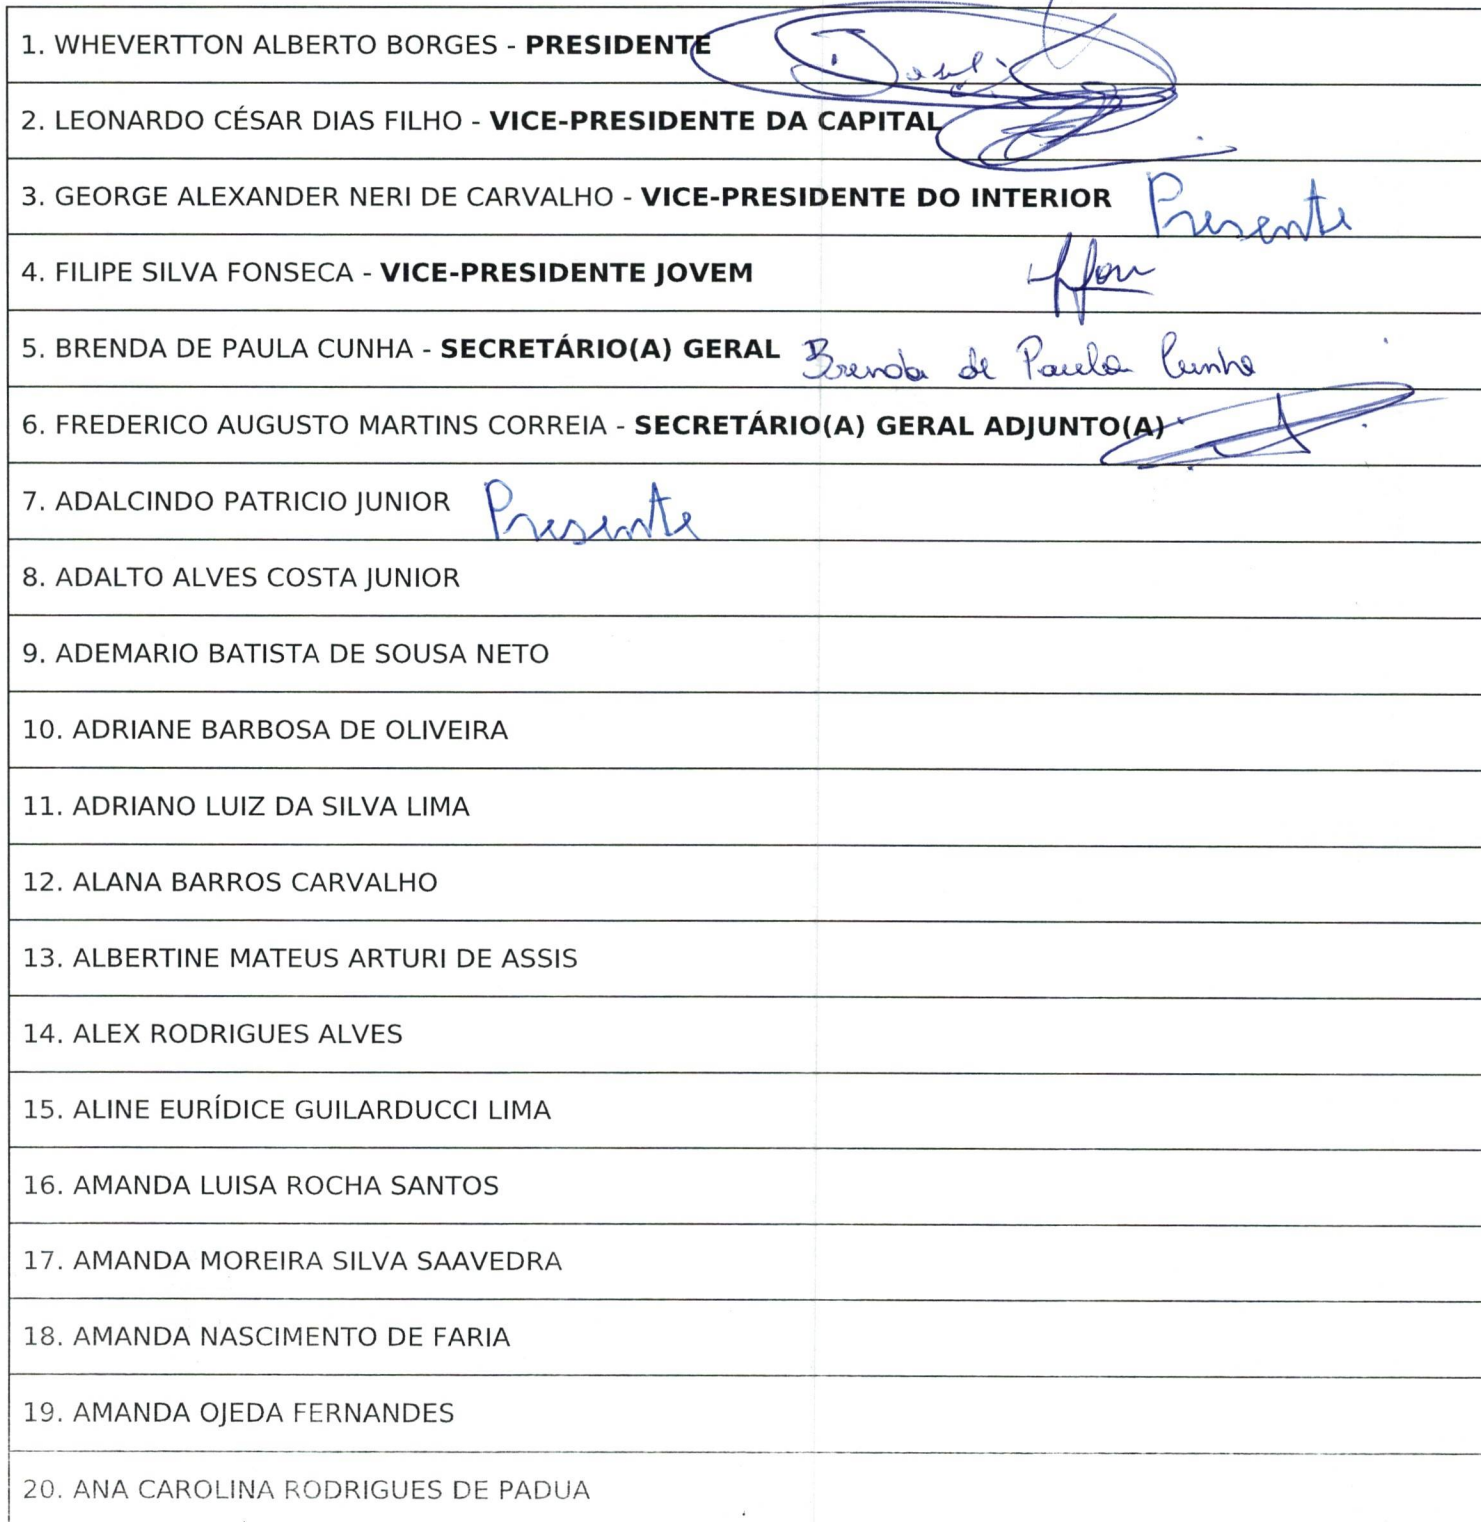 1. WHEVERTTON ALBERTO BORGES - PRESIDENTE
2. LEONARDO CÉSAR DIAS FILHO - VICE-PRESIDENTE DA CAPITAL
3. GEORGE ALEXANDER NERI DE CARVALHO - VICE-PRESIDENTE DO INTERIOR Presente
4. FILIPE SILVA FONSECA - VICE-PRESIDENTE JOVEM
5. BRENDA DE PAULA CUNHA - SECRETÁRIO(A) GERAL Brenda de Paula Cunha
6. FREDERICO AUGUSTO MARTINS CORREIA - SECRETÁRIO(A) GERAL ADJUNTO(A)
7. ADALCINDO PATRICIO JUNIOR Presente
8. ADALTO ALVES COSTA JUNIOR
9. ADEMARIO BATISTA DE SOUSA NETO
10. ADRIANE BARBOSA DE OLIVEIRA
11. ADRIANO LUIZ DA SILVA LIMA
12. ALANA BARROS CARVALHO
13. ALBERTINE MATEUS ARTURI DE ASSIS
14. ALEX RODRIGUES ALVES
15. ALINE EURÍDICE GUILARDUCCI LIMA
16. AMANDA LUISA ROCHA SANTOS
17. AMANDA MOREIRA SILVA SAAVEDRA
18. AMANDA NASCIMENTO DE FARIA
19. AMANDA OJEDA FERNANDES
20. ANA CAROLINA RODRIGUES DE PADUA